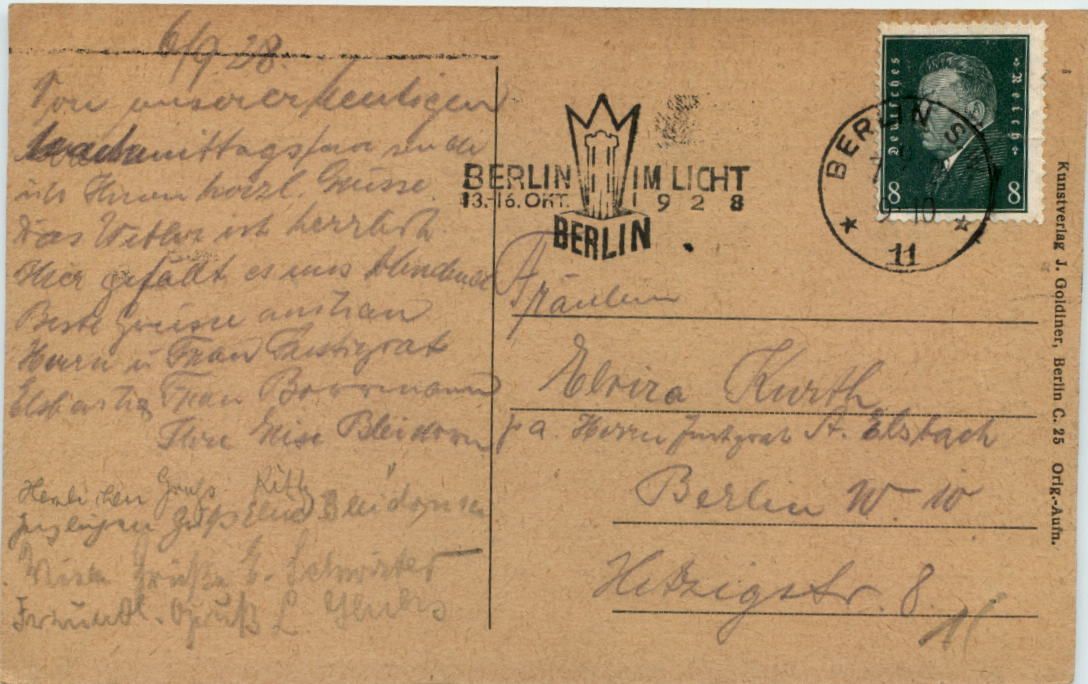 6/9 28.
Von unserer heutigen
nachmittags sende
ich Ihnen herzl. Grüsse
Das Wetter ist herrlich
Hier gefällt es uns blendend
Beste Grüsse an
Herrn u Frau Justizrat
Frau Borrmann
Ihre Elise Bleidorn
Herzlichen Gruß Kitty
Gruß Bleidorn
Viele Grüße E.
Freundl. Gruß L.
BERLIN IM LICHT
13.-16. OKT. 1928
BERLIN
BERLIN S
9-10
11
Deutsches Reich
8 8
Fräulein
Elvira Kurth
p a. Herrn Justizrat A. Elsbach
Berlin W 10
Hitzigstr. 8.
Kunstverlag J. Goldiner, Berlin C. 25 Orig.-Aufn.